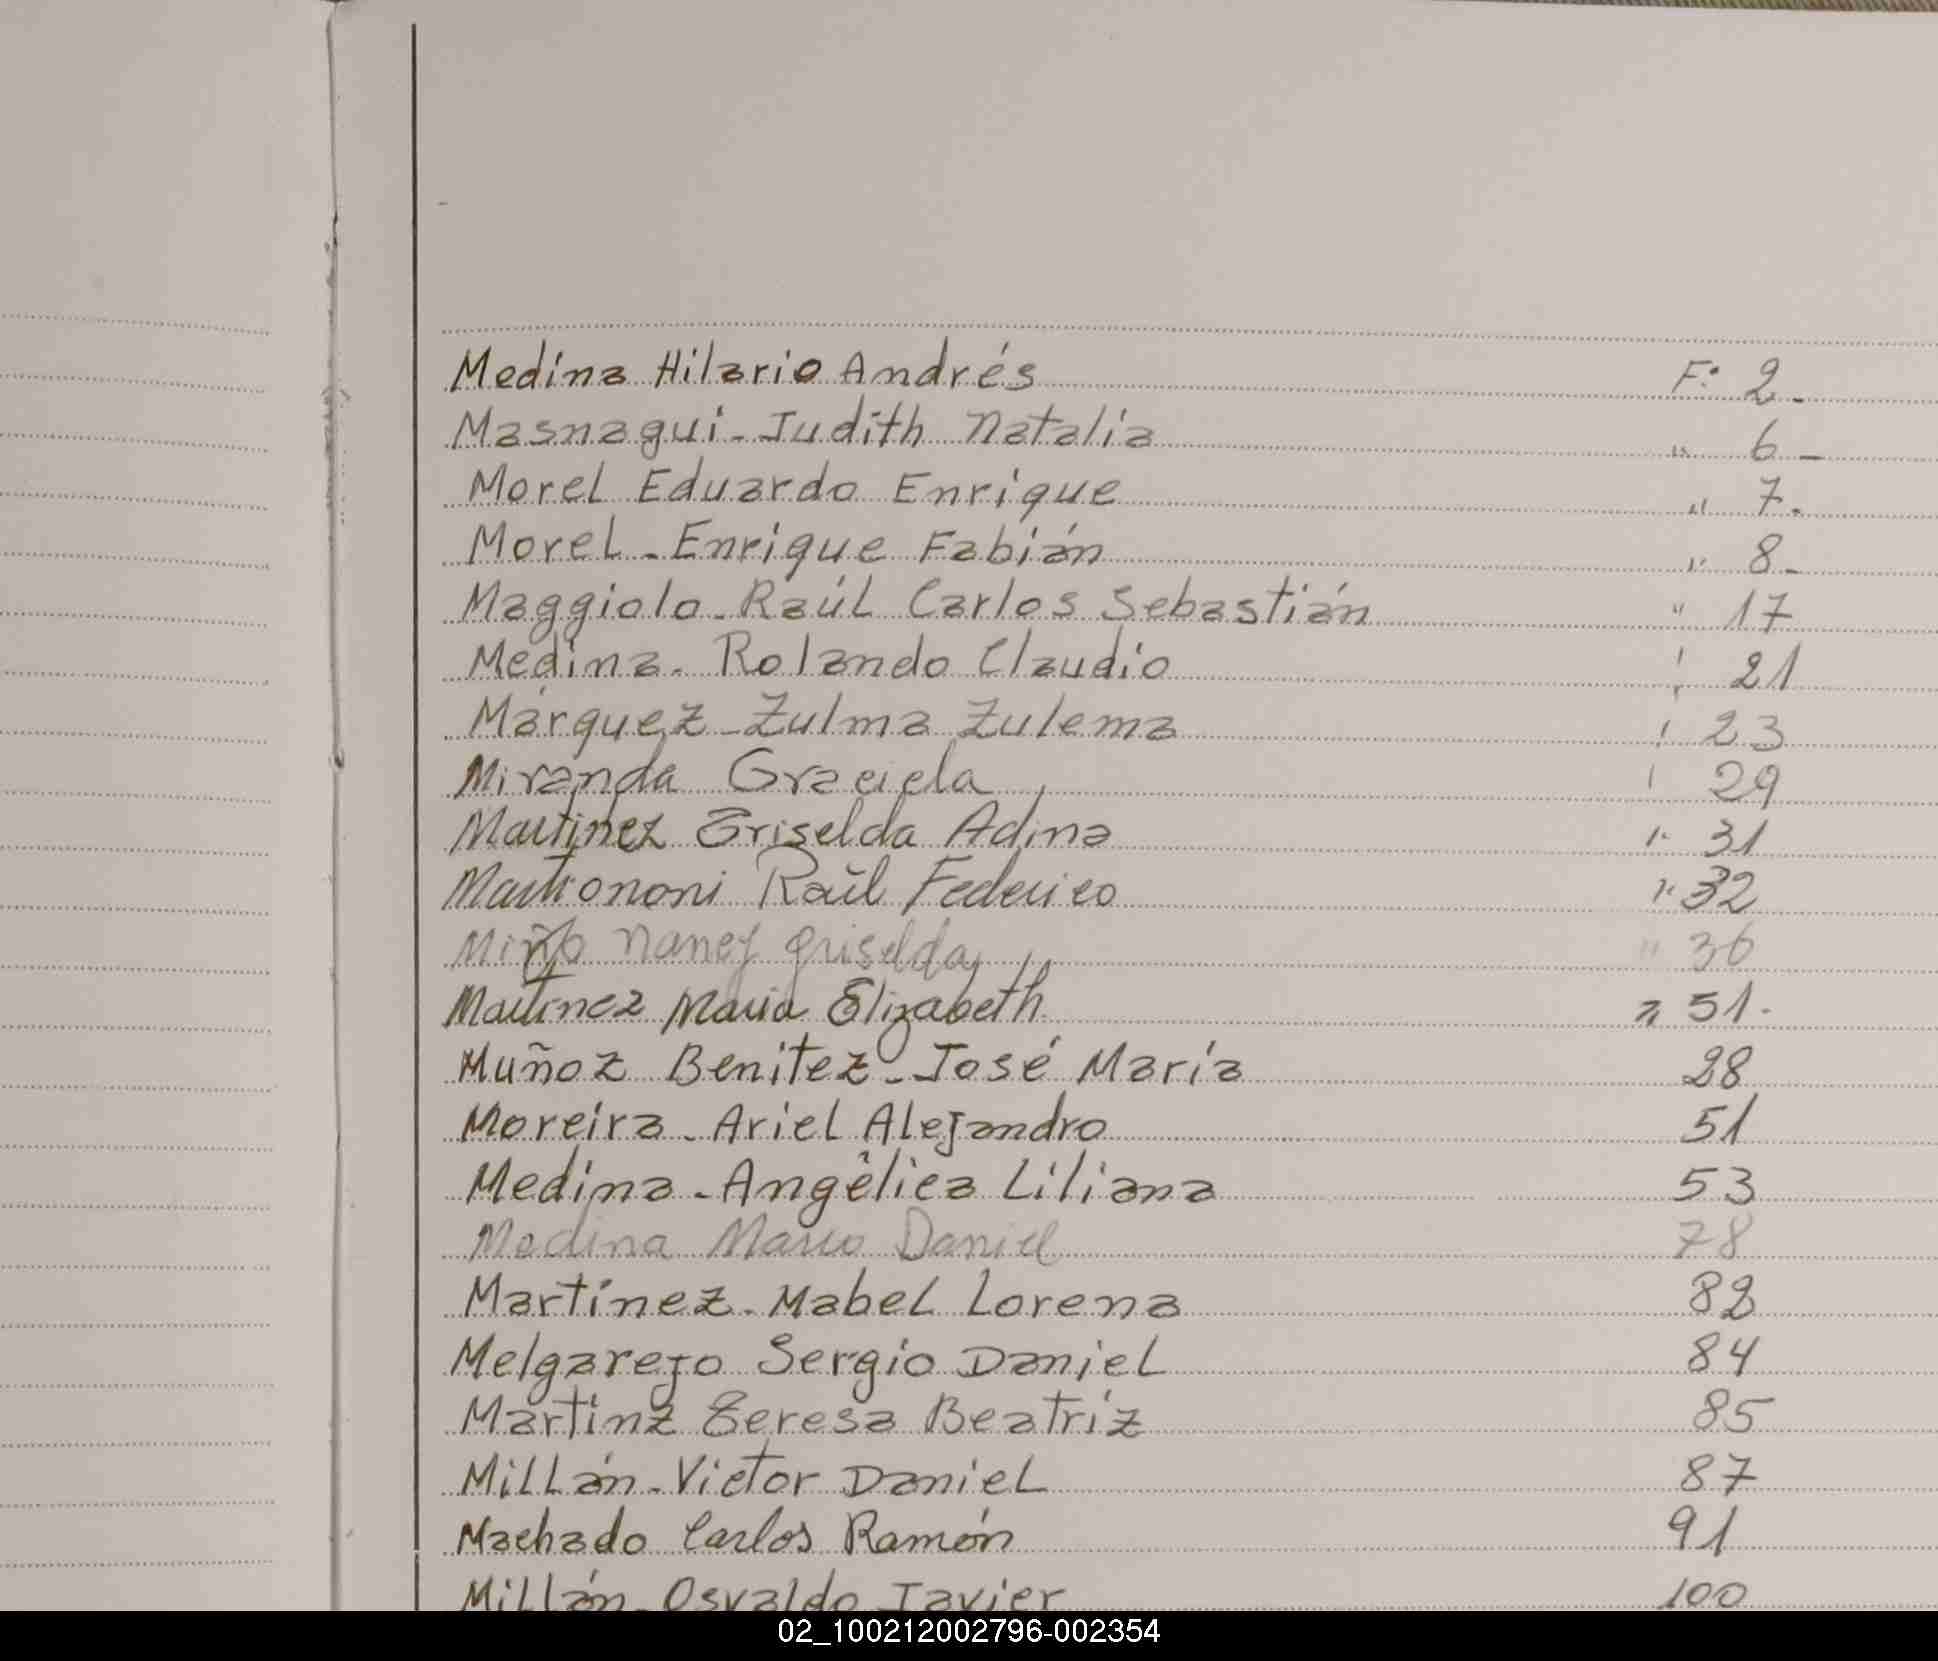 Medina Hilario Andrés F: 2.
Masnagui - Judith Natalia " 6 -
Morel Eduardo Enrique " 7.
Morel - Enrique Fabián " 8 -
Maggiolo - Raúl Carlos Sebastián " 17
Medina. Rolando Claudio " 21
Márquez - Zulma Zulema " 23
Miranda Graciela " 29
Martínez Griselda Adina " 31
Raúl Federico " 32
Miño Nancy Griselda " 36
Martínez María Elizabeth " 51.
Muñoz Benitez - José María 28
Moreira - Ariel Alejandro 51
Medina - Angélica Liliana 53
Medina Daniel 78
Martínez - Mabel Lorena 82
Melgarejo Sergio Daniel 84
Martinz Teresa Beatríz 85
Millán - Victor Daniel 87
Machado Carlos Ramón 91
Millán - Osvaldo Javier 100
02_100212002796-002354